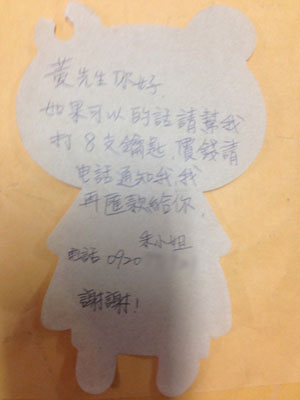 黃先生你好
如果可以的話請幫我
打8支鑰匙,價錢請
电話通知我,我
再匯款給你
小姐
电話 0920
謝謝!